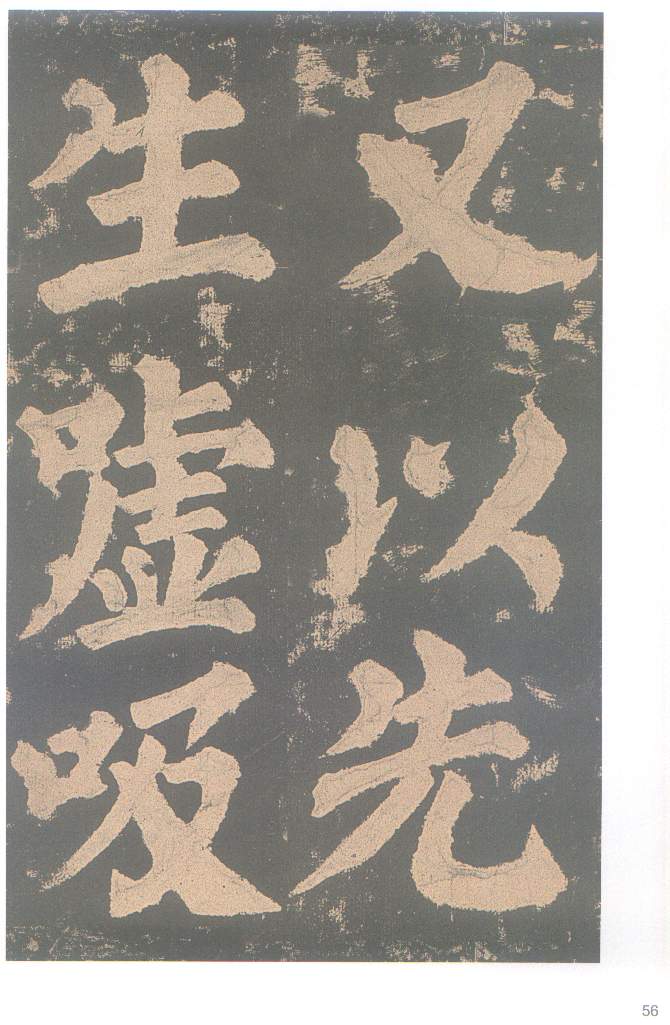 又以先
生嘘吸
56